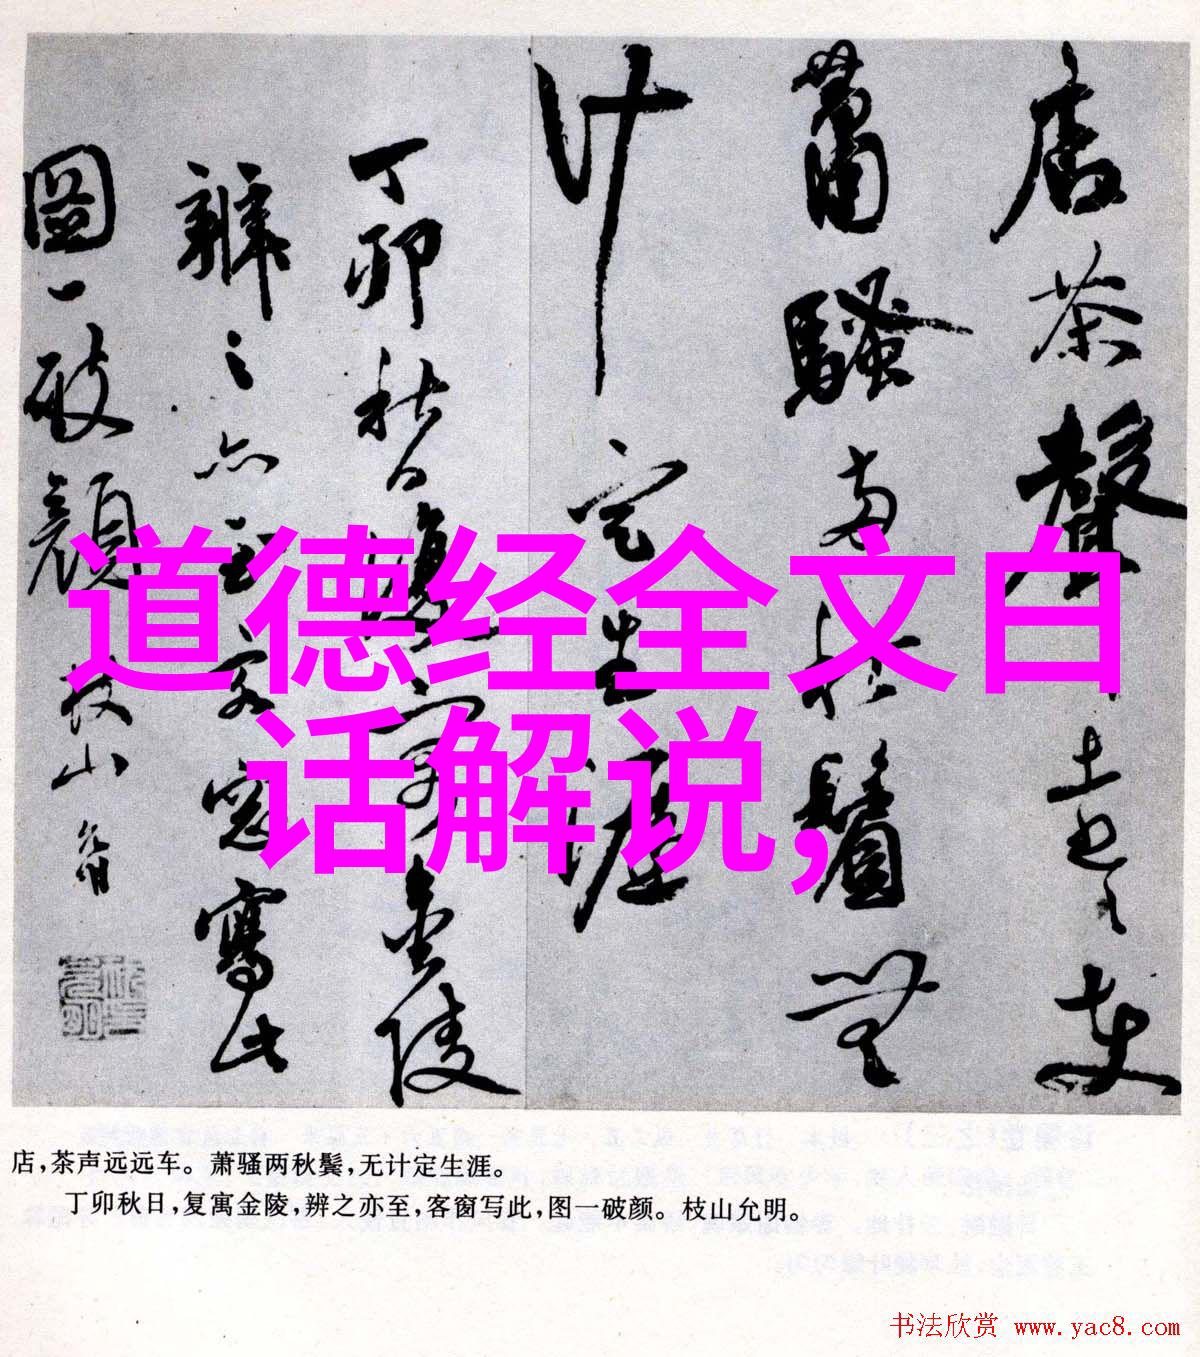 店茶声远远车
萧骚两秋鬓无
计定生涯
丁卯秋日复寓金陵
辨之亦至客窗写此
图一破颜枝山允明
道德经全文白
话解说,
店，茶声远远车。萧骚两秋鬓，无计定生涯。
丁卯秋日，复寓金陵，辨之亦至，客窗写此，图一破颜。枝山允明。
书法欣赏 www.yac8.com